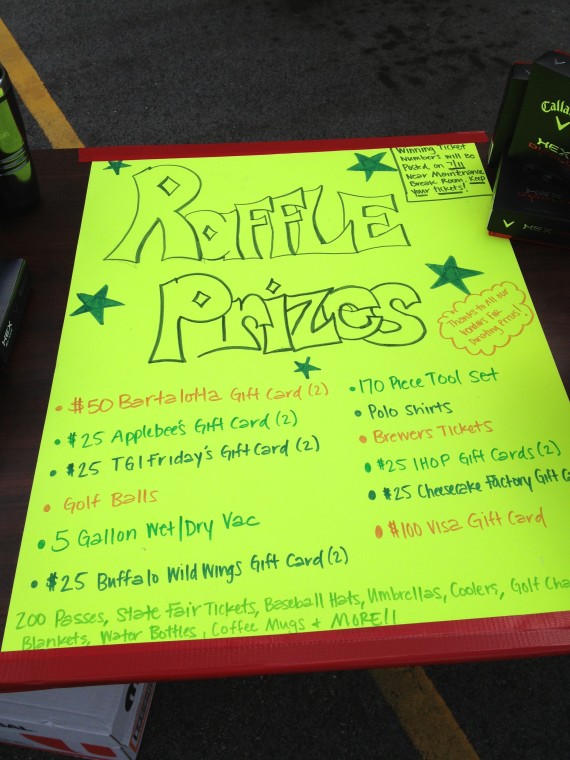 Winning Ticket
Numbers will be
Posted on 7/11
Near Maintenance
Break Room. Keep
your tickets!
RaFFLE
Prizes
Thanks to All our
Vendors For
Donating Prizes!
• $50 Bartalotta Gift Card (2)
• $25 Applebee's Gift Card (2)
• $25 TGI Friday's Gift Card (2)
• Golf Balls
• 5 Gallon Wet/Dry Vac
• $25 Buffalo Wild Wings Gift Card (2)
• 170 Piece Tool Set
• Polo Shirts
• Brewers Tickets
• $25 IHOP Gift Cards (2)
• $25 Cheesecake Factory Gift Ca
• $100 Visa Gift Card
Zoo Passes, State Fair Tickets, Baseball Hats, Umbrellas, Coolers, Golf Cha
Blankets, Water Bottles, Coffee Mugs & MORE!!
Calla
HEX
HEX
HEX